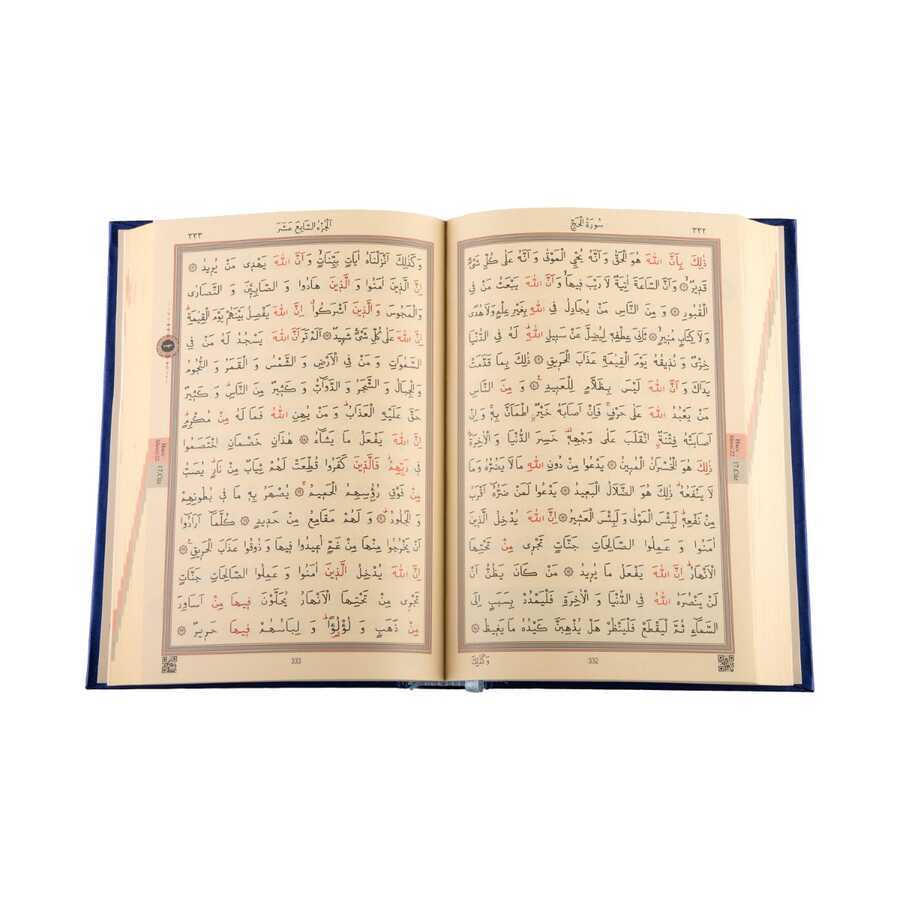 سُورَةُ الْحَجِّ
٣٣٢
ذٰلِكَ بِاَنَّ اللّٰهَ هُوَ الْحَقُّ وَ اَنَّهُ يُحْيِي الْمَوْتٰى وَ اَنَّهُ عَلٰى كُلِّ شَيْءٍ
قَد۪يرٌ ۞ وَ اَنَّ السَّاعَةَ اٰتِيَةٌ لَا رَيْبَ ف۪يهَا وَ اَنَّ اللّٰهَ يَبْعَثُ مَنْ فِي
الْقُبُورِ ۞ وَ مِنَ النَّاسِ مَنْ يُجَادِلُ فِي اللّٰهِ بِغَيْرِ عِلْمٍ وَلَا هُدًى
وَلَا كِتَابٍ مُن۪يرٍ ۞ ثَانِيَ عِطْفِه۪ لِيُضِلَّ عَنْ سَب۪يلِ اللّٰهِ لَهُ فِي الدُّنْيَا
خِزْيٌ وَ نُذ۪يقُهُ يَوْمَ الْقِيٰمَةِ عَذَابَ الْحَر۪يقِ ۞ ذٰلِكَ بِمَا قَدَّمَتْ
يَدَاكَ وَ اَنَّ اللّٰهَ لَيْسَ بِظَلَّامٍ لِلْعَب۪يدِ ۞ وَ مِنَ النَّاسِ
مَنْ يَعْبُدُ اللّٰهَ عَلٰى حَرْفٍ فَاِنْ اَصَابَهُ خَيْرٌ اطْمَاَنَّ بِه۪ وَ اِنْ
اَصَابَتْهُ فِتْنَةٌ انْقَلَبَ عَلٰى وَجْهِه۪ خَسِرَ الدُّنْيَا وَ الْاٰخِرَةَ
ذٰلِكَ هُوَ الْخُسْرَانُ الْمُب۪ينُ ۞ يَدْعُوا مِنْ دُونِ اللّٰهِ مَا لَا يَضُرُّهُ وَمَا
لَا يَنْفَعُهُ ذٰلِكَ هُوَ الضَّلَالُ الْبَع۪يدُ ۞ يَدْعُوا لَمَنْ ضَرُّهُ اَقْرَبُ
مِنْ نَفْعِه۪ لَبِئْسَ الْمَوْلٰى وَ لَبِئْسَ الْعَش۪يرُ ۞ اِنَّ اللّٰهَ يُدْخِلُ الَّذ۪ينَ
اٰمَنُوا وَ عَمِلُوا الصَّالِحَاتِ جَنَّاتٍ تَجْر۪ي مِنْ تَحْتِهَا
الْاَنْهَارُ اِنَّ اللّٰهَ يَفْعَلُ مَا يُر۪يدُ ۞ مَنْ كَانَ يَظُنُّ اَنْ
لَنْ يَنْصُرَهُ اللّٰهُ فِي الدُّنْيَا وَ الْاٰخِرَةِ فَلْيَمْدُدْ بِسَبَبٍ اِلَى
السَّمَاءِ ثُمَّ لْيَقْطَعْ فَلْيَنْظُرْ هَلْ يُذْهِبَنَّ كَيْدُهُ مَا يَغ۪يظُ ۞
332
وَكَذٰلِكَ
Hac
17.Cüz
٣٣٣
اَلْجُزْءُ السَّابِعَ عَشَرَ
وَ كَذٰلِكَ اَنْزَلْنَاهُ اٰيَاتٍ بَيِّنَاتٍ وَ اَنَّ اللّٰهَ يَهْد۪ي مَنْ يُر۪يدُ ۞
اِنَّ الَّذ۪ينَ اٰمَنُوا وَ الَّذ۪ينَ هَادُوا وَ الصَّابِـ۪ٔينَ وَ النَّصَارٰى
وَ الْمَجُوسَ وَ الَّذ۪ينَ اَشْرَكُوا اِنَّ اللّٰهَ يَفْصِلُ بَيْنَهُمْ يَوْمَ الْقِيٰمَةِ
اِنَّ اللّٰهَ عَلٰى كُلِّ شَيْءٍ شَه۪يدٌ ۞ اَلَمْ تَرَ اَنَّ اللّٰهَ يَسْجُدُ لَهُ مَنْ فِي
السَّمٰوَاتِ وَ مَنْ فِي الْاَرْضِ وَ الشَّمْسُ وَ الْقَمَرُ وَ النُّجُومُ
وَ الْجِبَالُ وَ الشَّجَرُ وَ الدَّوَابُّ وَ كَث۪يرٌ مِنَ النَّاسِ وَ كَث۪يرٌ
حَقَّ عَلَيْهِ الْعَذَابُ وَ مَنْ يُهِنِ اللّٰهُ فَمَا لَهُ مِنْ مُكْرِمٍ
اِنَّ اللّٰهَ يَفْعَلُ مَا يَشَاءُ ۞ هٰذَانِ خَصْمَانِ اخْتَصَمُوا
ف۪ي رَبِّهِمْ فَالَّذ۪ينَ كَفَرُوا قُطِّعَتْ لَهُمْ ثِيَابٌ مِنْ نَارٍ يُصَبُّ
مِنْ فَوْقِ رُؤُسِهِمُ الْحَم۪يمُ ۞ يُصْهَرُ بِه۪ مَا ف۪ي بُطُونِهِمْ
وَ الْجُلُودُ ۞ وَ لَهُمْ مَقَامِعُ مِنْ حَد۪يدٍ ۞ كُلَّمَا اَرَادُوا
اَنْ يَخْرُجُوا مِنْهَا مِنْ غَمٍّ اُع۪يدُوا ف۪يهَا وَ ذُوقُوا عَذَابَ الْحَر۪يقِ ۞
اِنَّ اللّٰهَ يُدْخِلُ الَّذ۪ينَ اٰمَنُوا وَ عَمِلُوا الصَّالِحَاتِ جَنَّاتٍ
تَجْر۪ي مِنْ تَحْتِهَا الْاَنْهَارُ يُحَلَّوْنَ ف۪يهَا مِنْ اَسَاوِرَ
مِنْ ذَهَبٍ وَ لُؤْلُؤًا وَ لِبَاسُهُمْ ف۪يهَا حَر۪يرٌ ۞
333
Hac
17.Cüz